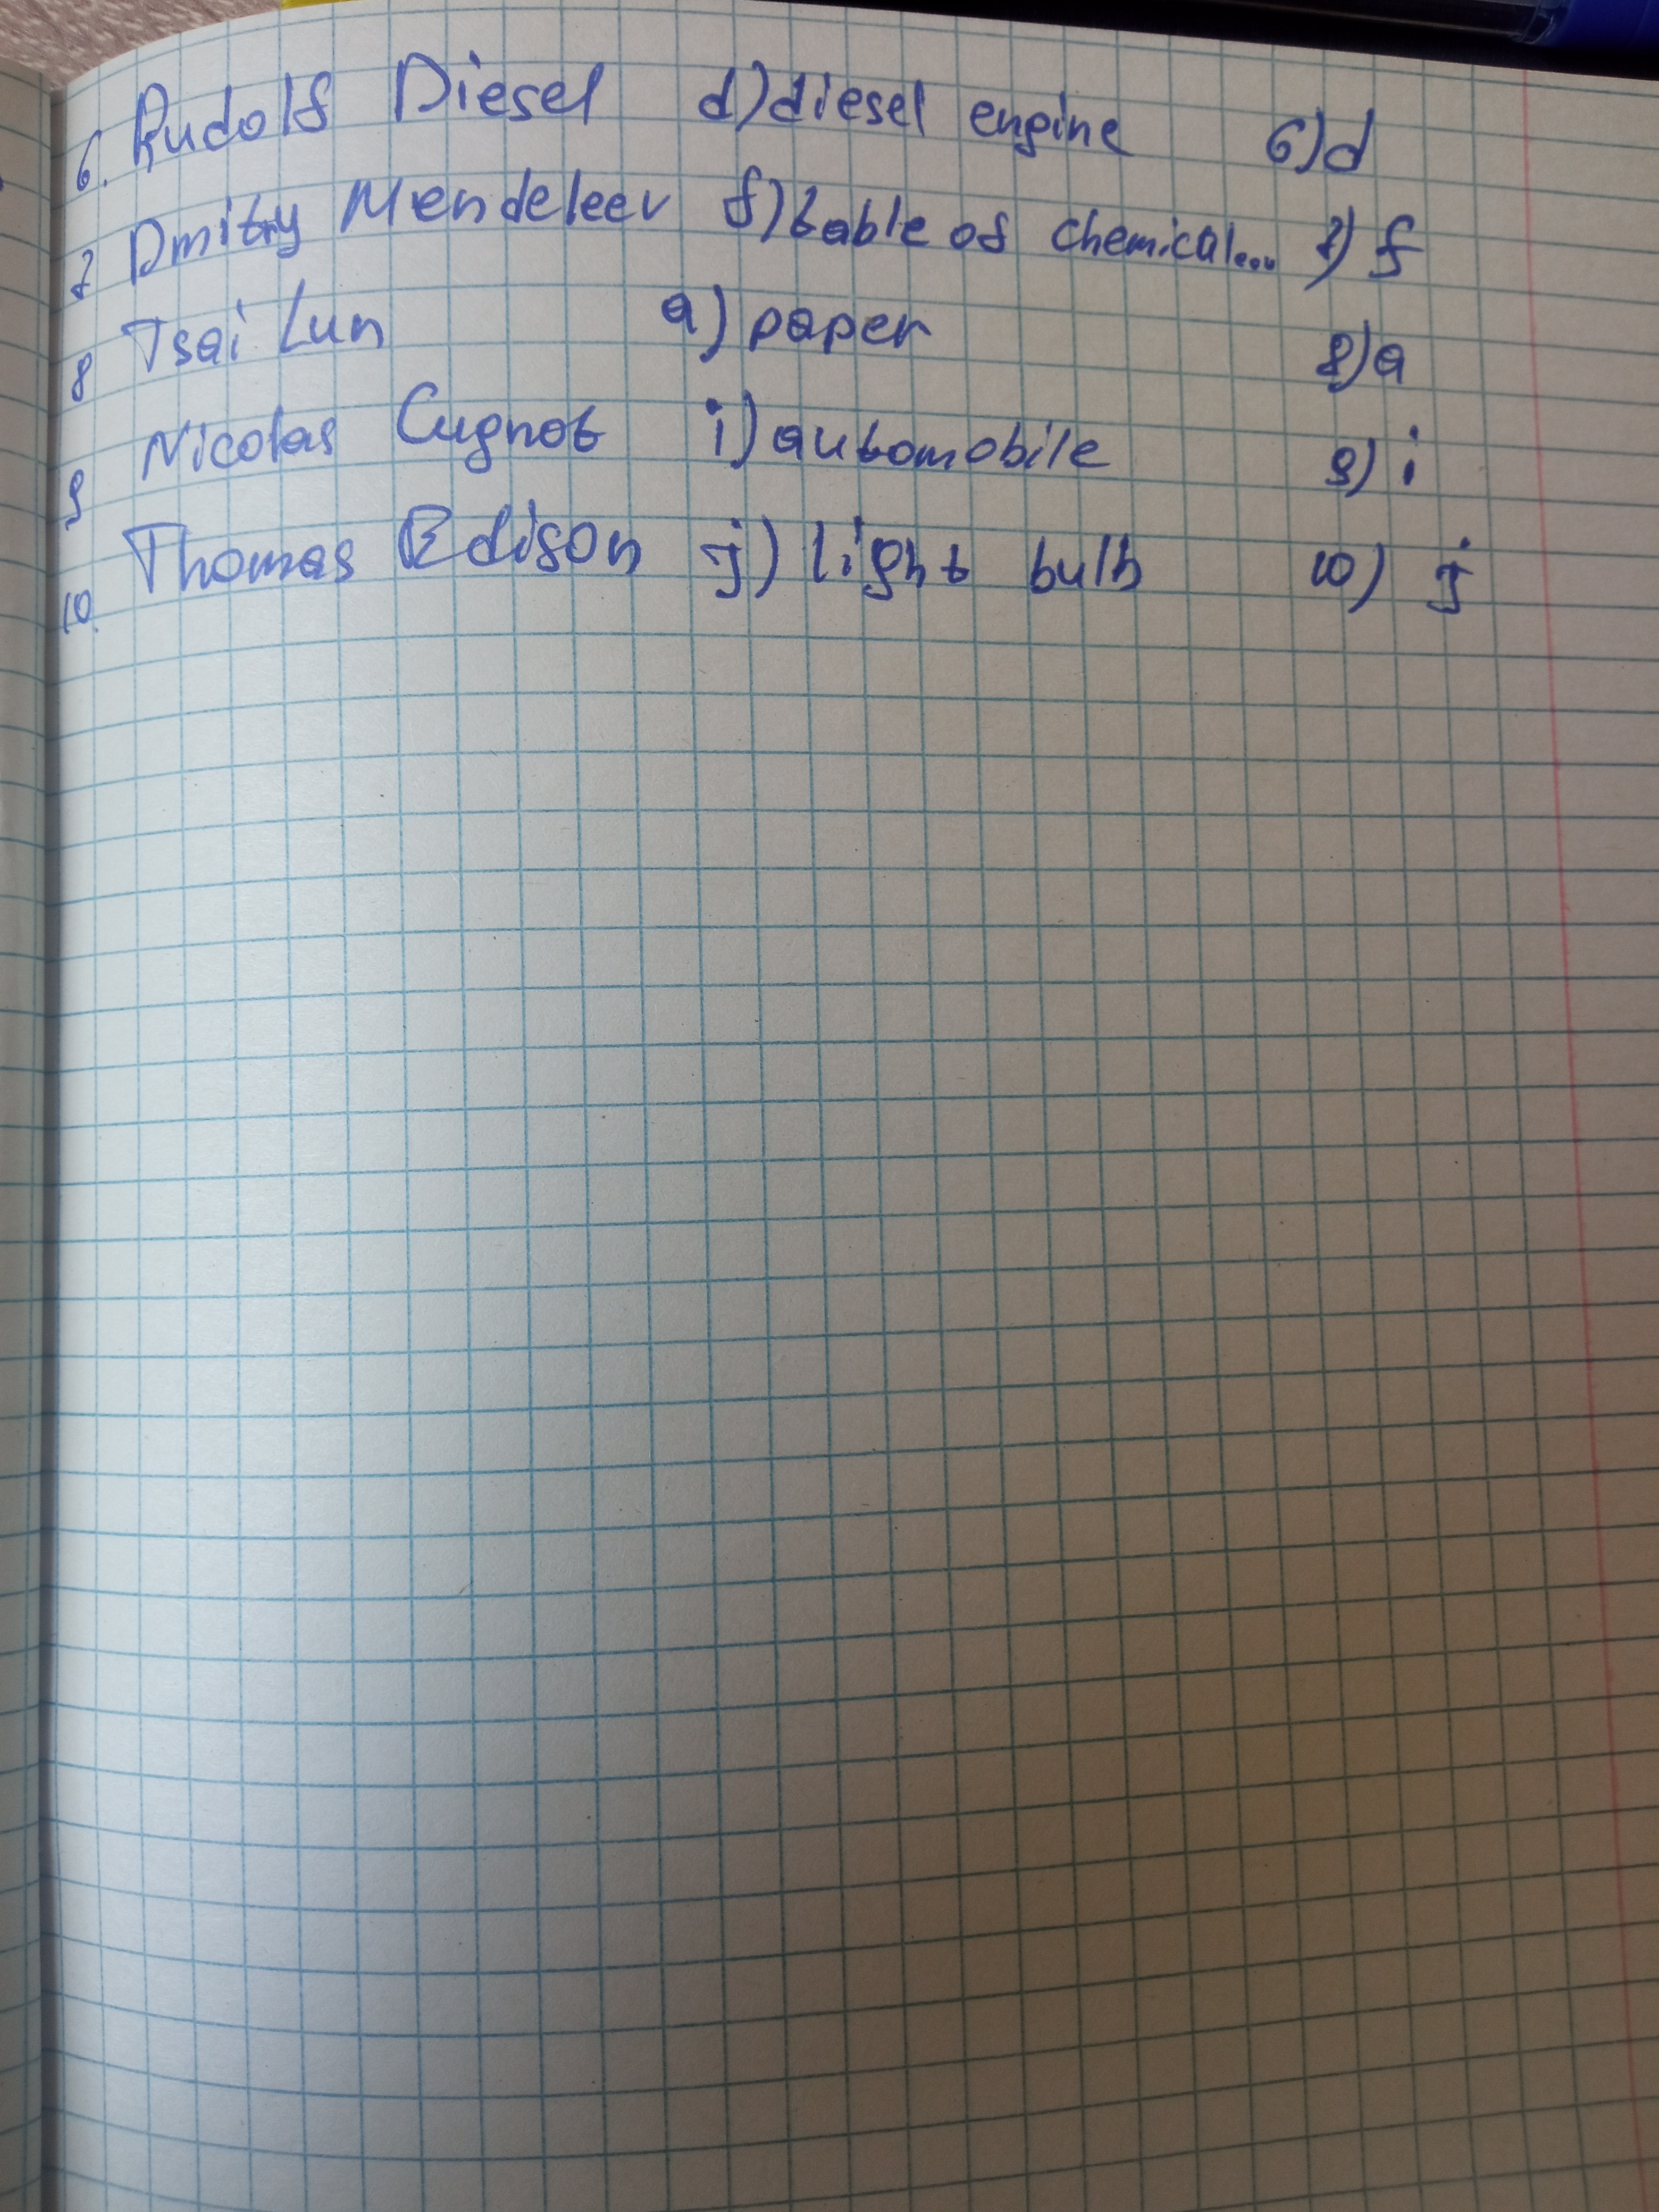 6. Rudolf Diesel d) diesel engine 6) d
7 Dmitry Mendeleev f) table of chemical... 7) f
8 Tsai Lun a) paper 8) a
9 Nicolas Cugnot i) automobile 9) i
10. Thomas Edison j) light bulb 10) j